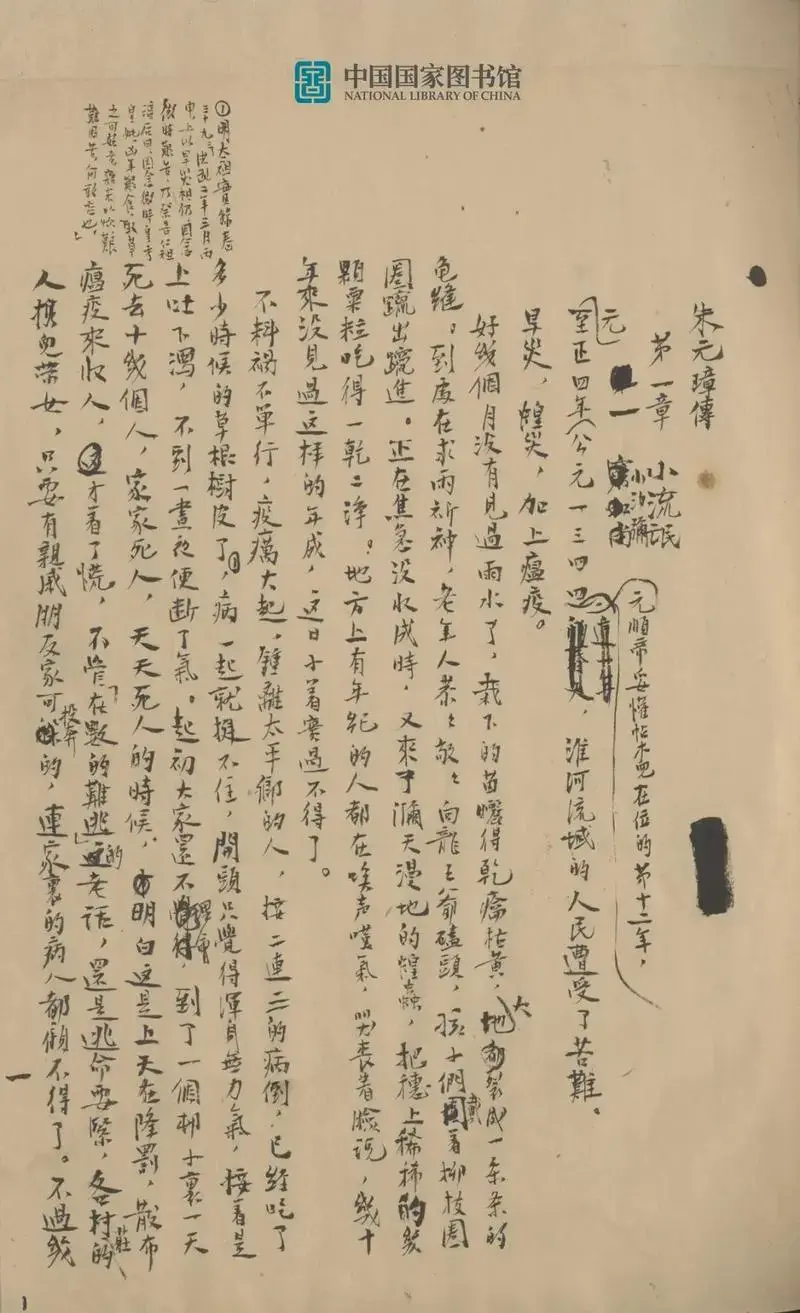 中国国家图书馆
NATIONAL LIBRARY OF CHINA
朱元璋傳
第一章 小流氓
一 小沙彌
元至正四年（公元一三四四，元順帝妥懽帖木兒在位的第十二年，淮河流域的人民遭受了苦難。
旱災，蝗災，加上瘟疫。
好幾個月沒有見過雨水了，栽下的苗曬得乾癟枯黃，大地裂成一条条的
龟縫。到處在求雨祈神，老年人恭恭敬敬向龍王爺磕頭，孩子們戴着柳枝圈
圈躥出躥進。正在焦急沒收成時，又來了瀰天漫地的蝗蟲，把穗上稀稀的幾
顆粟粒吃得一乾二淨。地方上有年紀的人都在唉声嘆氣，哭喪着臉說，幾十
年來沒見過这样的年成，这日子着實过不得了。
不料禍不单行，疫癘大起，鍾離太平鄉的人，接二連三的病倒，已經吃了
多少時候的草根樹皮了①，病一起就挺不住，開頭只覺得渾身無力氣，接着是
上吐下瀉，不到一晝夜便断了氣。起初大家還不理會，到了一個邨子裏一天
死去十幾個人，家家死人，天天死人的時候，明白这是上天在降罰，散布
瘟疫來收人，才看了慌，不管「在數的難逃」的老話，還是逃命要緊，各村莊的
人携兒帶女，只要有親戚朋友家可投奔的，連家裏的病人都顧不得了。不過幾
①明太祖實錄卷
三十九：洪武二年三月丙
申，上以旱災相仍，因念
微時艱苦，乃祭告仁祖
淳后曰：因念微時皇考
皇妣，凶年艱食，取草
之可茹者雜米以炊，艱
難困苦，何敢忘也。」
一
1